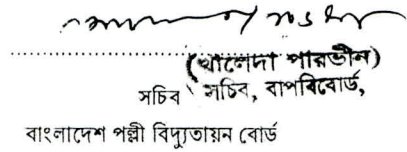 (খালেদা পারভীন)
সচিব সচিব, বাপবিবোর্ড,
বাংলাদেশ পল্লী বিদ্যুতায়ন বোর্ড